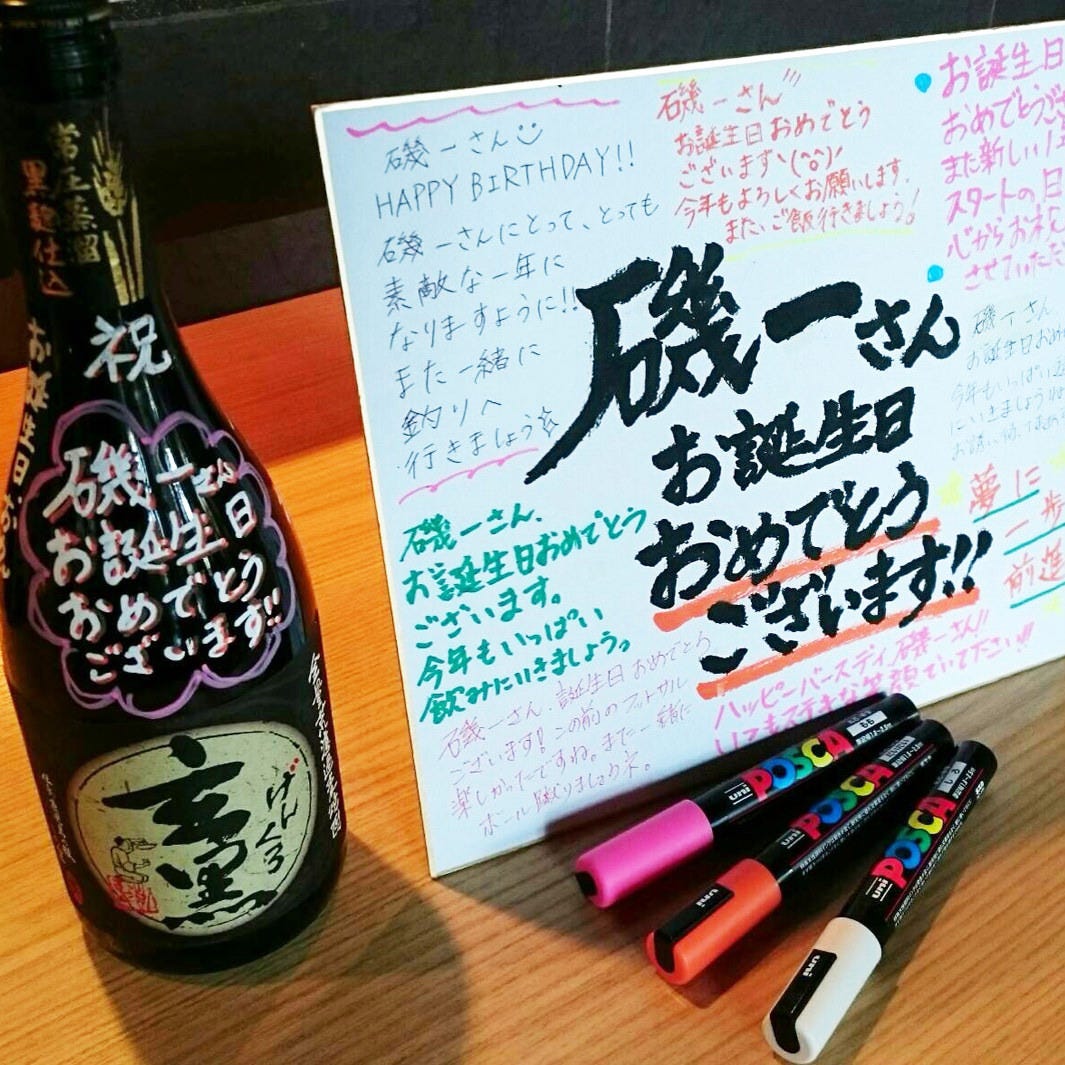 常圧蒸留
黒麹仕込
お誕生日
祝
磯一さん
お誕生日
おめでとう
ございます!!
玄黒
げんくろ
磯一さん
HAPPY BIRTHDAY!!
磯一さんにとって、とっても
素敵な一年に
なりますように!!
また一緒に
釣りへ
行きましょう☆
磯一さん
お誕生日おめでとう
ございます ヽ(^o^)ノ
今年もよろしくお願いします。
また、ご飯行きましょう!
お誕生日
おめでとう
また新しい
スタートの日
心からお祝
させていただ
磯一さん
お誕生日
おめでとう
ございます!!
磯一さん
お誕生日おめ
今年もいっぱい
にいきましょう
夢に
一歩
前進
磯一さん、
お誕生日おめでとう
ございます。
今年もいっぱい
飲みにいきましょうっ
磯一さん、誕生日おめでとう
ございます!この前のフットサル
楽しかったですね。また一緒に
ボール蹴りましょう。
ハッピーバースディ磯一さん!!
いつもステキな笑顔でいて下さい!!
uni POSCA
もも
uni POSCA
uni POSCA
しろ